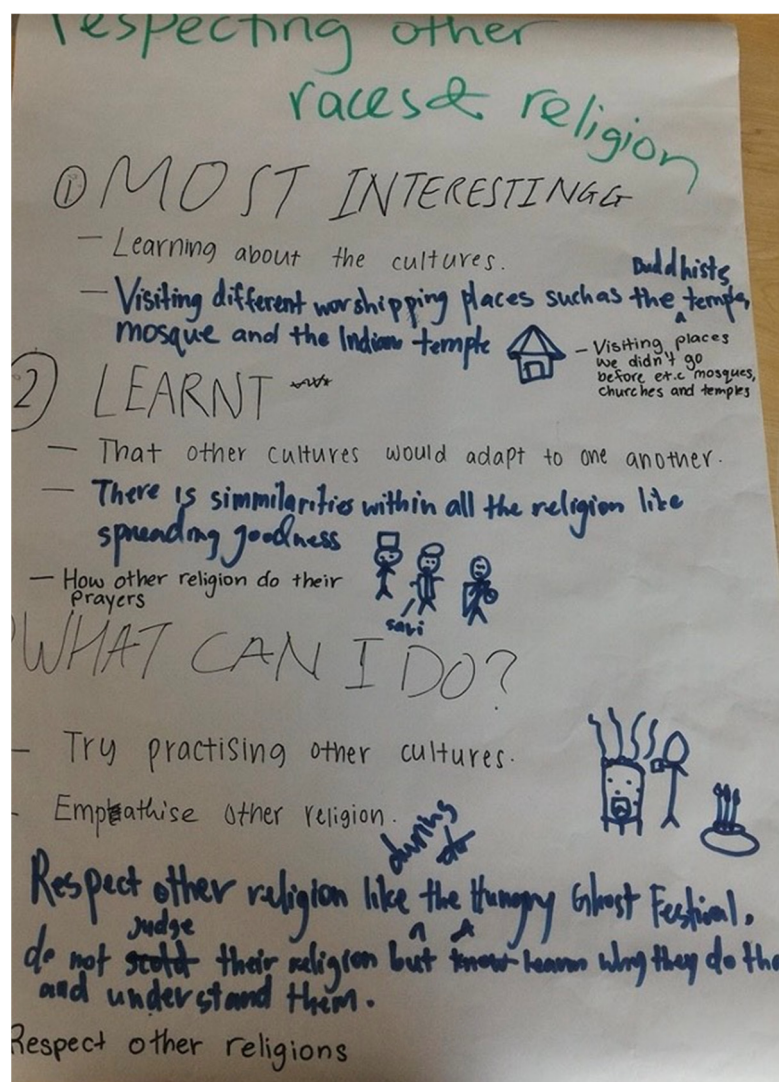 respecting other
races & religion
① MOST INTERESTINGG
- Learning about the cultures.
Buddhists
- Visiting different worshipping places such as the ^ temple,
mosque and the Indian temple
- Visiting places
we didn't go
before et.c mosques,
churches and temples
2 LEARNT
- That other cultures would adapt to one another.
- There is simmilarities within all the religion like
spreading goodness
- How other religion do their
prayers
sari
WHAT CAN I DO?
- Try practising other cultures.
- Empathise other religion.
during
Respect other religion like ^ the Hungry Ghost Festival,
judge
do not scold their religion but know learn why they do tha
and understand them.
Respect other religions